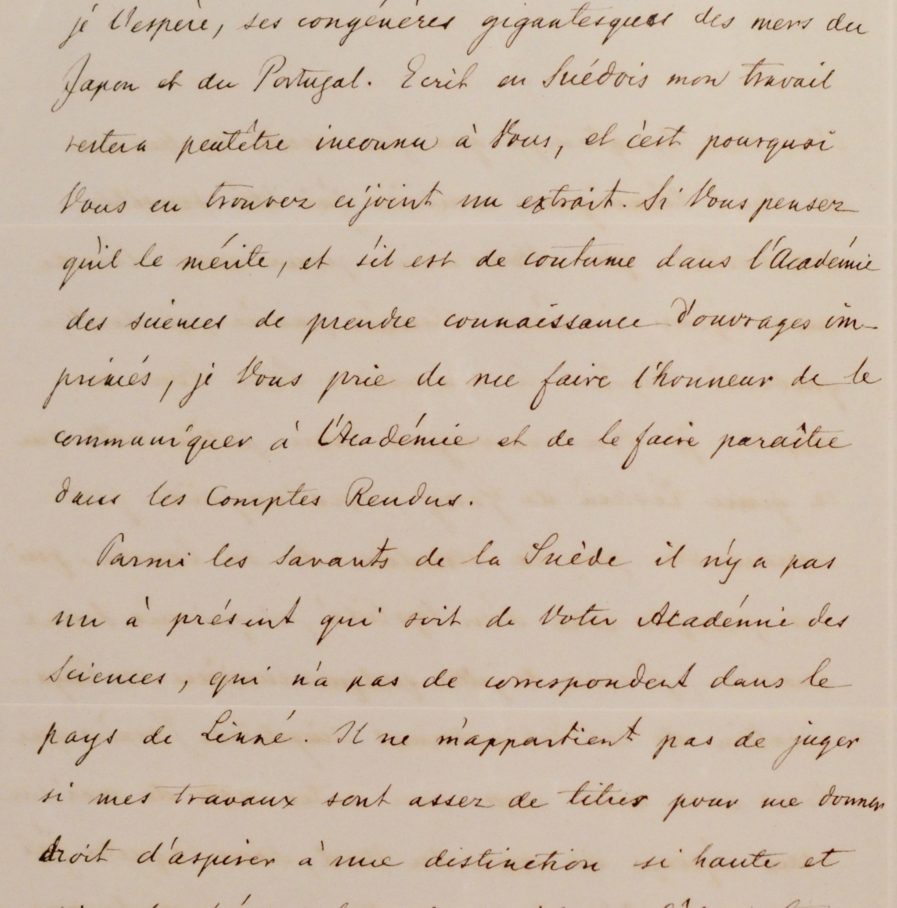 je l'espère, ses congénères gigantesques des mers du
Japon et du Portugal. Ecrit en Suédois mon travail
restera peutêtre inconnu à Vous, et c'est pourquoi
Vous en trouvez ci'joint un extrait. Si Vous pensez
qu'il le mérite, et s'il est de coutume dans l'Académie
des sciences de prendre connaissance d'ouvrages im-
primés, je Vous prie de me faire l'honneur de le
communiquer à l'Académie et de le faire paraître
dans les Comptes Rendus.
Parmi les savants de la Suède il n'y a pas
un à présent qui soit de Votre Académie des
Sciences, qui n'a pas de correspondent dans le
pays de Linné. Il ne m'appartient pas de juger
si mes travaux sont assez de titres pour me donner
droit d'aspirer à une distinction si haute et